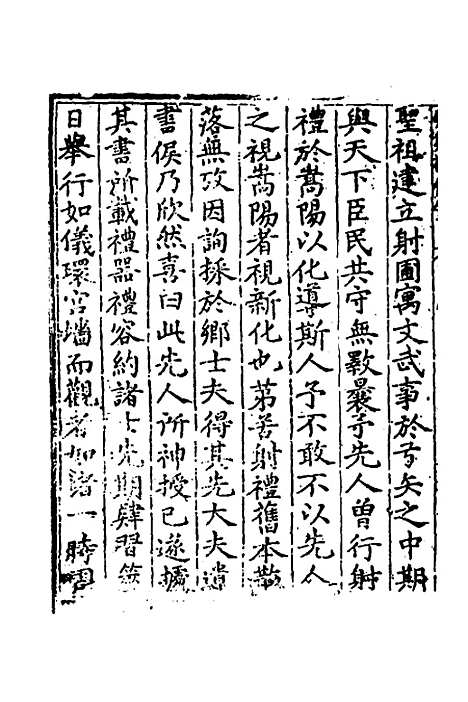 聖祖建立射圃寓文武事於弓矢之中期
與天下臣民共守無斁曩予先人曾行射
禮於嵩陽以化導斯人予不敢不以先人
之視嵩陽者視新化也第苦射禮舊本散
落無攷因詢採於鄉士夫得其先大夫遺
書侯乃欣然喜曰此先人所神授已遂據
其書所載禮器禮容約諸士先期肄習筮
日舉行如儀環宮墻而觀者如堵一時